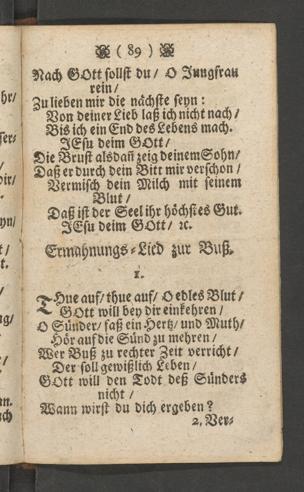 ( 89 )
Nach GOtt sollst du / O Jungfrau
rein /
Zu lieben mir die nächste seyn :
Von deiner Lieb laß ich nicht nach /
Bis ich ein End des Lebens mach.
JEsu deim GOtt /
Die Brust alsdañ zeig deinem Sohn /
Daß er durch dein Bitt mir verschon /
Vermisch dein Milch mit seinem
Blut /
Daß ist der Seel ihr höchstes Gut.
JEsu deim GOtt / ꝛc.
Ermahnungs-Lied zur Buß.
1.
THue auf / thue auf / O edles Blut /
GOtt will bey dir einkehren /
O Sünder / faß ein Hertz / und Muth /
Hör auf die Sünd zu mehren /
Wer Buß zu rechter Zeit verricht /
Der soll gewißlich Leben /
GOtt will den Todt deß Sünders
nicht /
Wann wirst du dich ergeben ?
2. Ver-